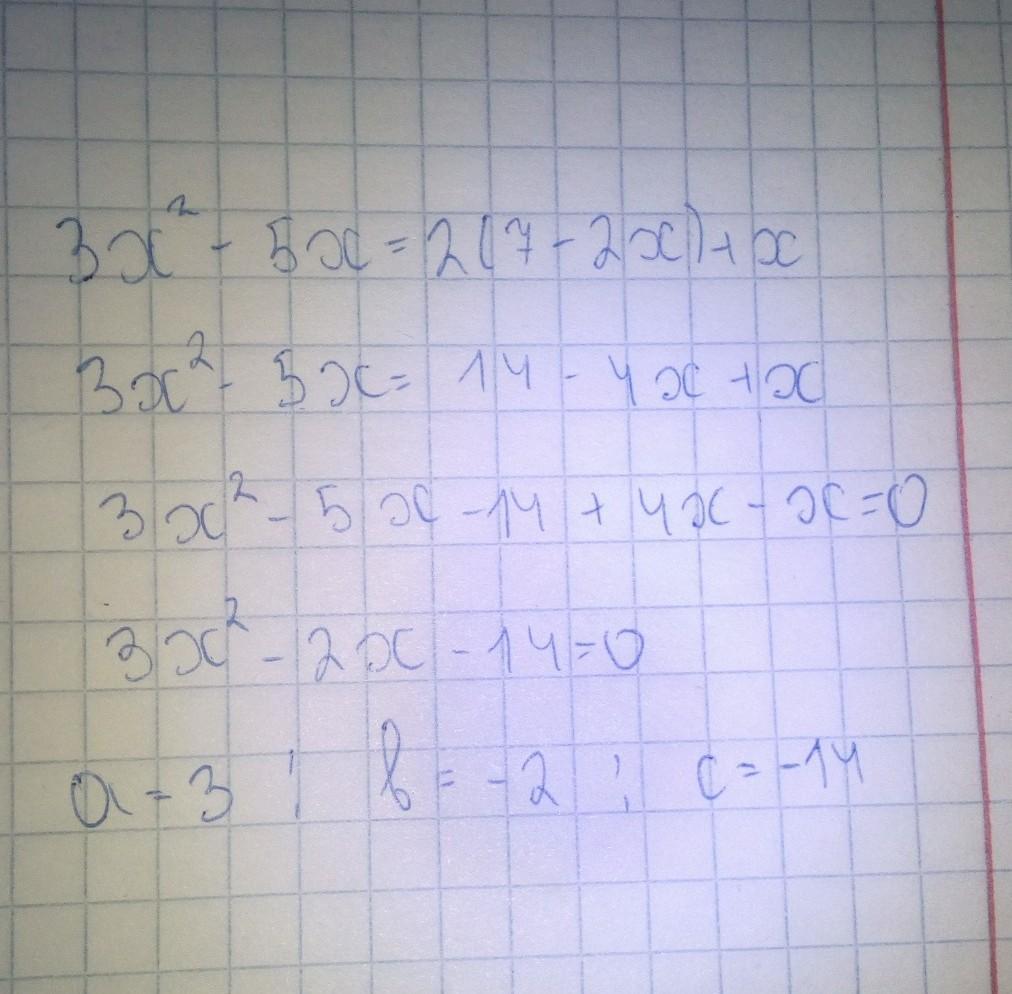 3x² - 5x = 2(7 - 2x) + x
3x² - 5x = 14 - 4x + x
3x² - 5x - 14 + 4x - x = 0
3x² - 2x - 14 = 0
a = 3 ; b = -2 ; c = -14